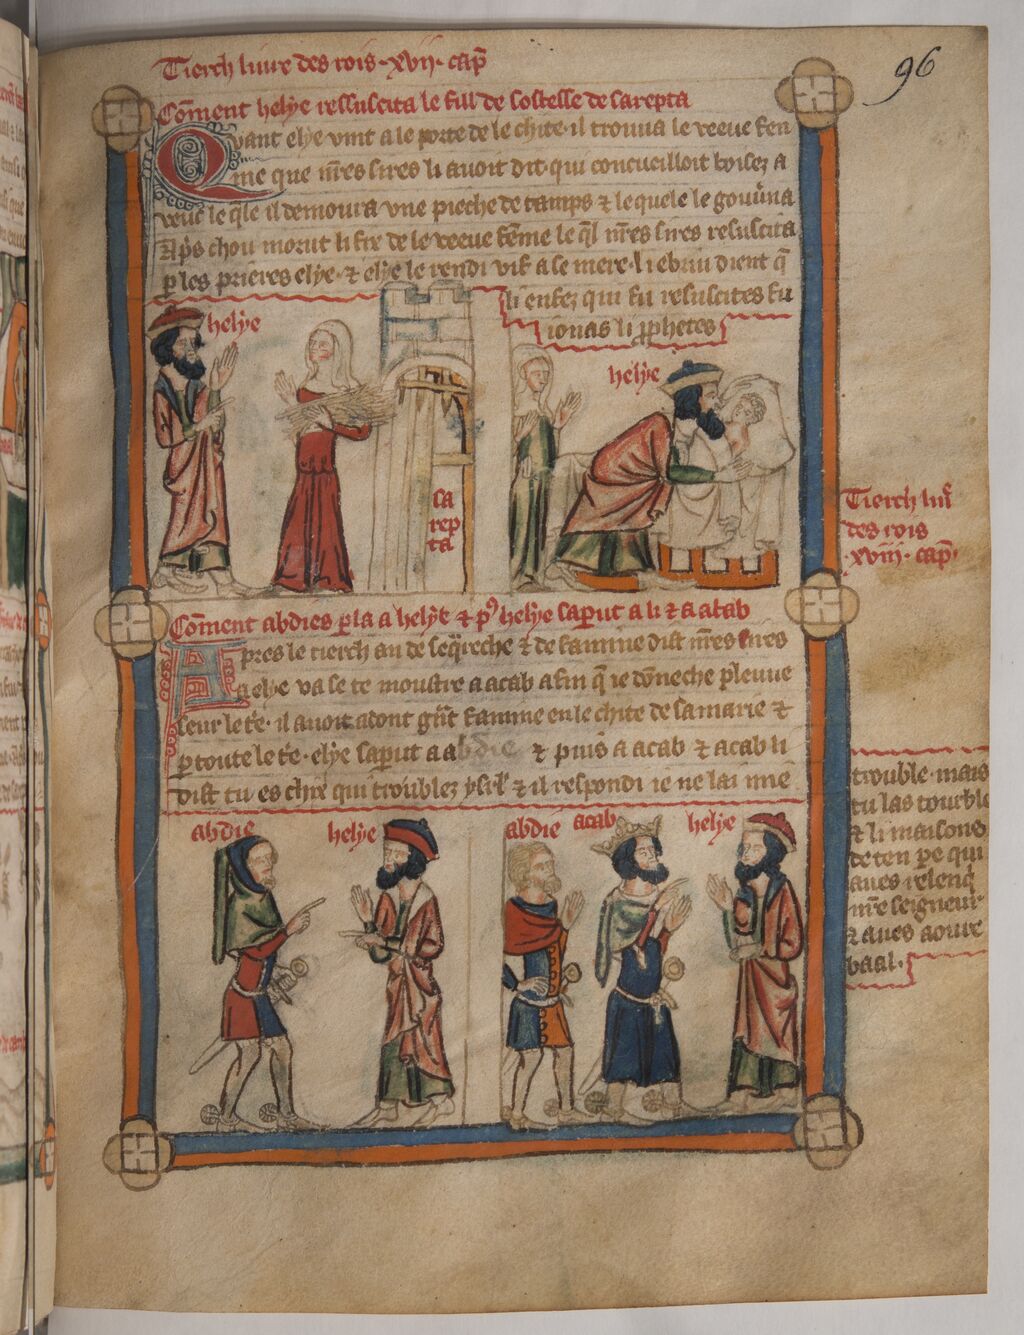 96
Tierch liure des rois · xvij · cap̃
Cõment helye ressuscita le fill de lostesse de sarepta
Quant elye vint a le porte de le chite · il trouua le veeue fen
me que nr̃es sires li auoit dit qui concueilloit boisez a
veuc le q̃le il demoura vne pieche de tamps ⁊ le quele le gouũna
Ap̃s chou morut li fix de le veeue fẽme le q̃l nr̃es sires resuscita
p les prieres elye · ⁊ elye le rendi vif a se mere · li ebriu dient q̃
li enfez qui fu resuscites fu
ionas li pphetes
helye
helye
sa
rep
ta
Tierch liũ
des rois
· xviij · cap̃ ·
Cõment abdies pla a helye ⁊ p⁹ helye saput a li ⁊ a acab
Apres le tierch an de seq̃reche ⁊ de famine dist nr̃es sires
a elye va se te moustre a acab afin q̃ ie dõneche pleuue
seur le tr̃e · il auoit adont gñt famine en le chite de samarie ⁊
p toute le tr̃e · elye saput a abdie ⁊ puis a acab ⁊ acab li
dist tu es chix qui troublez ysrl̃ ⁊ il respondi ie ne lai mie
trouble · mais
tu las tourble
⁊ li maisons
de ten pe qui
aues relenq̃
nr̃e seigneur
⁊ aues aoure
baal ·
abdie
helye
abdie
acab
helye